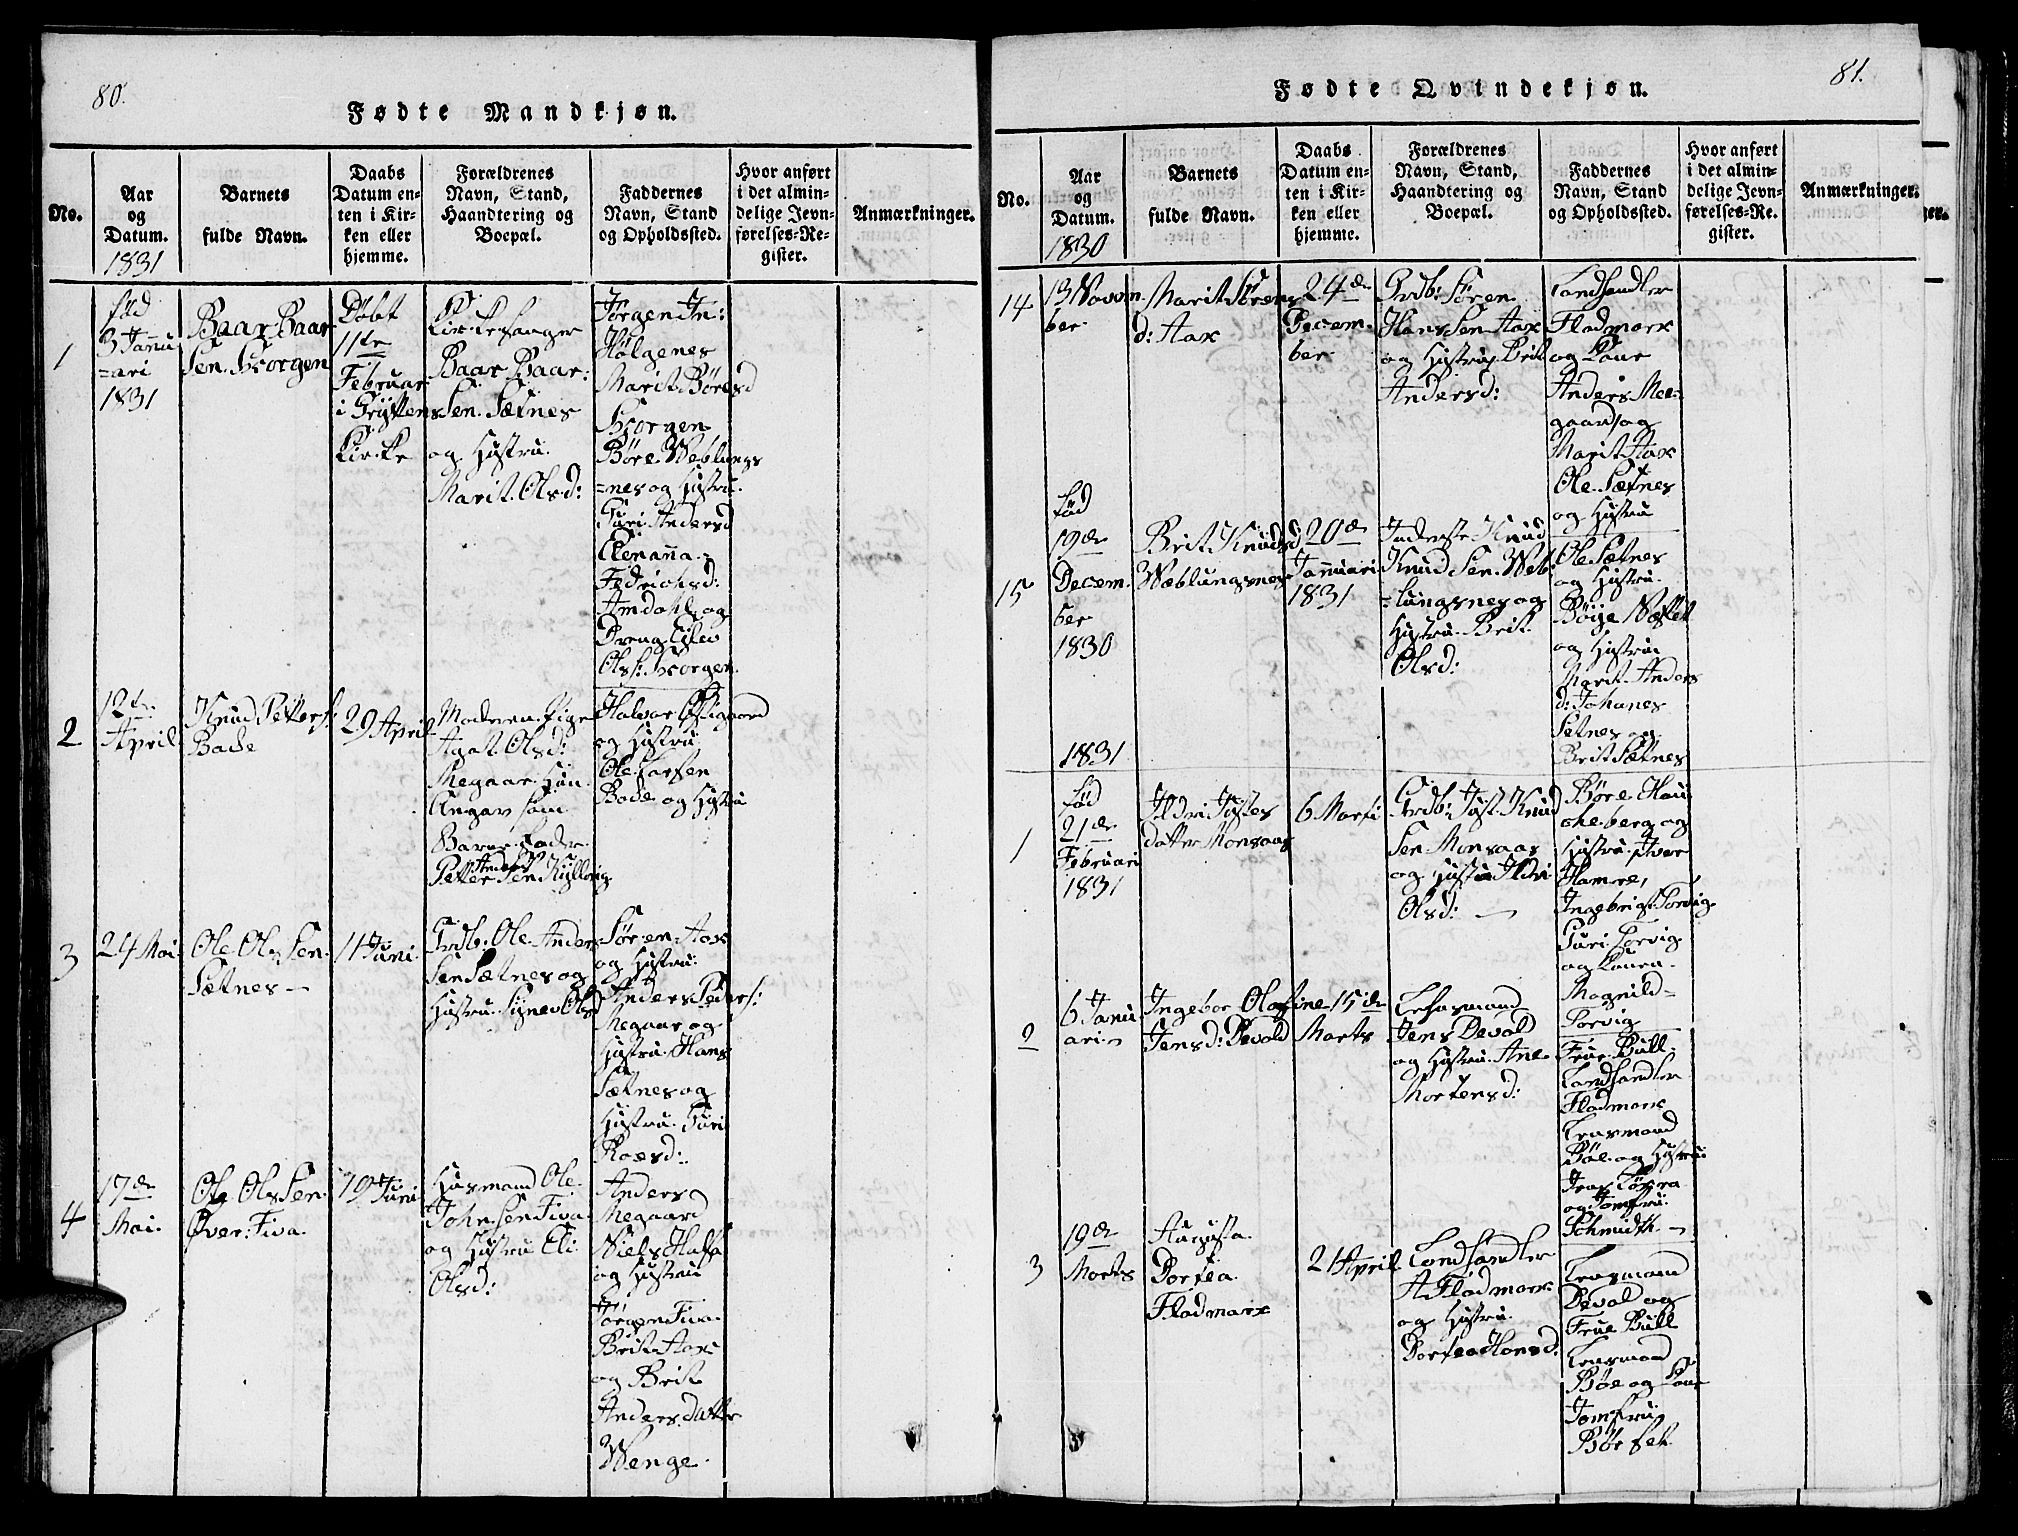 80.
Fødte Mandkjøn.
No.
Aar
og
Datum.
1831
Barnets
fulde Navn.
Daabs
Datum en-
ten i Kir-
ken eller
hjemme.
Forældrenes
Navn, Stand,
Haandtering og
Boepæl.
Faddernes
Navn, Stand
og Opholdssted.
Hvor anført
i det almin-
delige Jevn-
førelses-Re-
gister.
Anmærkninger.
1
fød
3 Janu
=ari
1831
Baar Baar
Sen. Horgen
Døbt
11te
Februar
i Gryttens
Kirke
Kirkesanger
Baar Baar:
Sen. Sætnes
og Hustru.
Marit. Olsd:
Jørgen In:
Hølgenes
Marit Børesd
Horgen
Børe Weblungs
=nes og Hustru.
Guri Andersd
Elenanna
Fedrichsd:
Amdahl og
Dreng Eilev
Olss: Horgen
2
12te
April
Knud Petters:
Bade
29 April
Moderen Pige
Agat. Olsd:
Megaar. Hun
Angav som
Barne Fader
Petter Anders Sen Kylling
Halvor
og Hustru
Ole Larsen
Bade og Hustru
3
24 Mai
Ole Ols Sen.
Sætnes
11 Juni
Grdb: Ole Anders
Sen Sætnes og
Hustru. Signe Olsd
Søren Aax
og Hustru.
Anders Peders:
Megaar og
Hustru. Hans
Sætnes og
Hustru. Guri
Roaesd:
4
17de
Mai.
Ole Ols Sen.
Øver: Fiva.
19 Juni
Husmand Ole
John Sen Fiva
og Hustru Eli
Olsd:
Anders
Megaard
Niels Halsa
og Hustru
Jørgen Fiva
Brit Aax
og Brit
Anders datter
Wenge.
81.
Fødte Qvindekjøn.
No.
Aar
og
Datum.
1830
Barnets
fulde Navn.
Daabs
Datum en-
ten i Kir-
ken eller
hjemme.
Forældrenes
Navn, Stand,
Haandtering og
Boepæl.
Faddernes
Navn, Stand
og Opholdssted.
Hvor anført
i det almin-
delige Jevn-
førelses-Re-
gister.
Anmærkninger.
14
13 Novem
ber
Marit Sørens
d: Aax
24de
Decem-
ber
Grdb: Søren
Hans Sen Aax
og Hustru. Brit
Andersd:
Landhandler
Fladmark
og Kone
Anders Me-
gaard og
Marit Aax
Ole Sætnes
og Hustru
15
fød
19de
Decem.
ber
1830
Brit Knudsd
Wæblungsnes
20de
Januari
1831
Inderste Knud
Knud Sen. Web
=lungsnes og
Hustru Brit
Olsd:
Ole Sætnes
og Hustru.
Bøije Næsset
og Hustru
Marit Anders
d: Johanes
Setnes og
Brit Sætnes
1831
1
fød
21de
Februari
1831
Ildri Justes
datter Monsaas
6 Marti
Grdb: Just Knud
Sen. Monsaas
og Hustru Ildri
Olsd:
Børe Hau
cheberg og
Hustru. Iver
Hamre,
Ingebrigt Torvig
Guri Torvig
og Kone
Magnild
Torvig
2
6 Janu
ari
Ingebor Olasine
Jensd: Devold
15de
Marts
Lensmand
Jens Devold
og Hustru. Ane
Mortensd:
Frue Bull
Landhandler
Fladmark
Lensmand
Bøe og Hustru
og Jomfru
Schmidth
3
19de
Marts
Augusta
Dortea
Fladmark
21 April
Landhandler
A. Fladmark
og Hustru.
Dortea Hansd:
Lensmand
Devold og
Frue Bull
Lensmand
Bøe og Kone
Jomfru